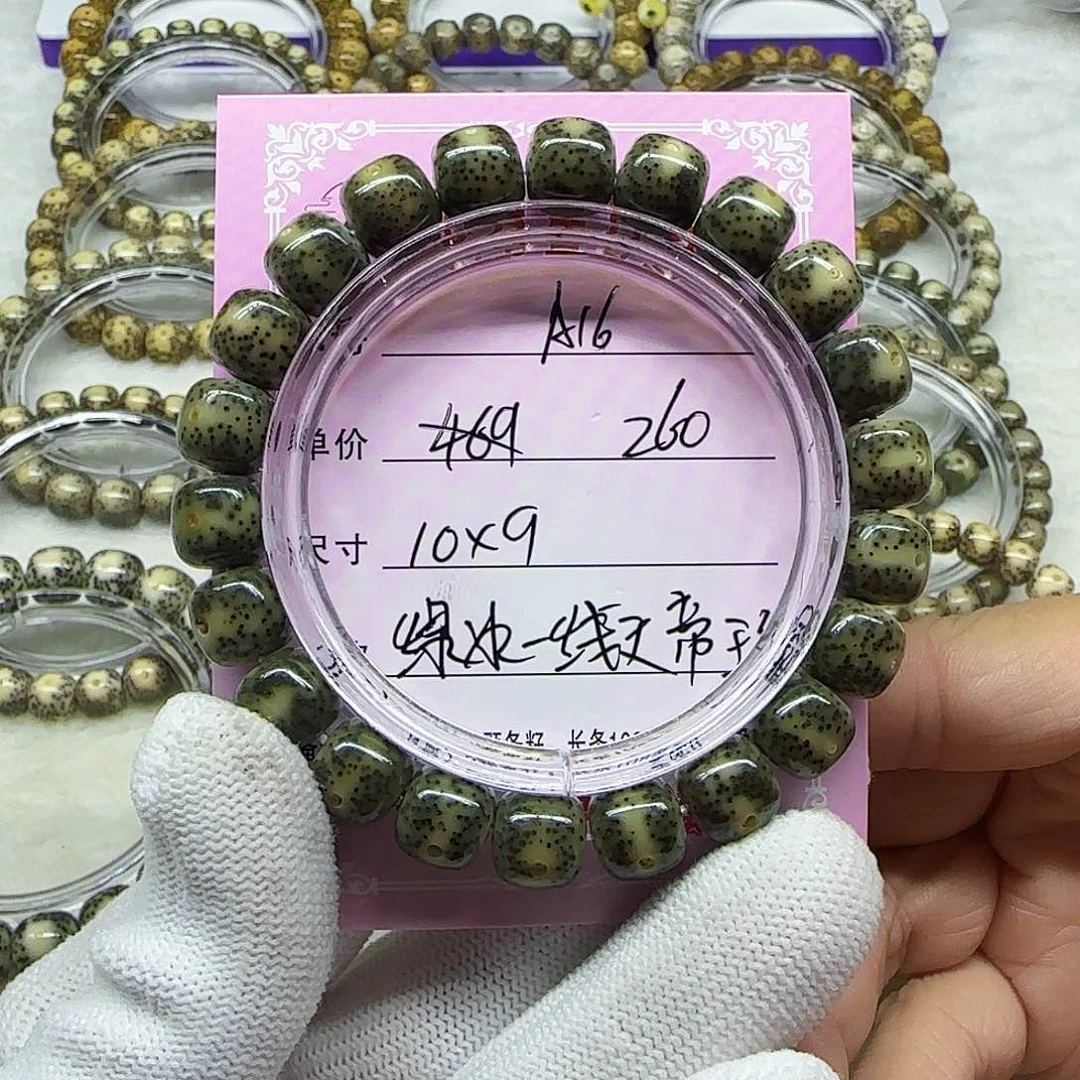 A16
单价 469 260
尺寸 10x9
绿冰一线天帝王